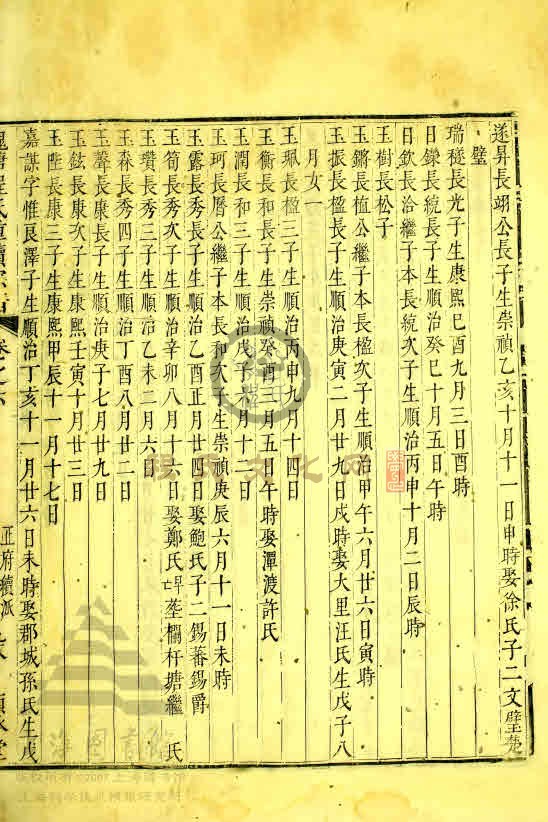 遂昇長翊公長子生崇禎乙亥十月十一日申時娶徐氏子二文璧苑
璧
瑞穟長光子生康熙己酉九月三日酉時
日鑅長統長子生順治癸巳十月五日午時
日欽長治繼子本長統次子生順治丙申十月二日辰時
玉樹長松子
玉鏘長榏公繼子本長楹次子生順治甲午六月廿六日寅時
玉振長楹長子生順治庚寅二月廿九日戌時娶大里汪氏生戊子八
月女一
玉珮長楹三子生順治丙申九月十四日
玉衡長和長子生崇禎癸酉三月五日午時娶潭渡許氏
玉潤長和三子生順治戊子十月十二日
玉珂長曆公繼子本長和次子生崇禎庚辰六月十一日未時
玉露長秀長子生順治乙酉正月廿四日娶鮑氏子二錫蕃錫爵
玉筍長秀次子生順治辛卯八月十六日娶鄭氏塟欄杆塘繼 氏
玉瓚長秀三子生順治乙未二月六日
玉森長秀四子生順治丁酉八月廿二日
玉聲長康長子生順治庚子七月廿九日
玉鉉長康次子生康熙壬寅十月廿三日
玉陛長康三子生康熙甲辰十一月十七日
嘉謀字惟良澤子生順治丁亥十一月廿六日未時娶郡城孫氏生戊
氏重續宗譜 卷之六 正府續派
上海圖書館
版权所有©2007上海图书馆